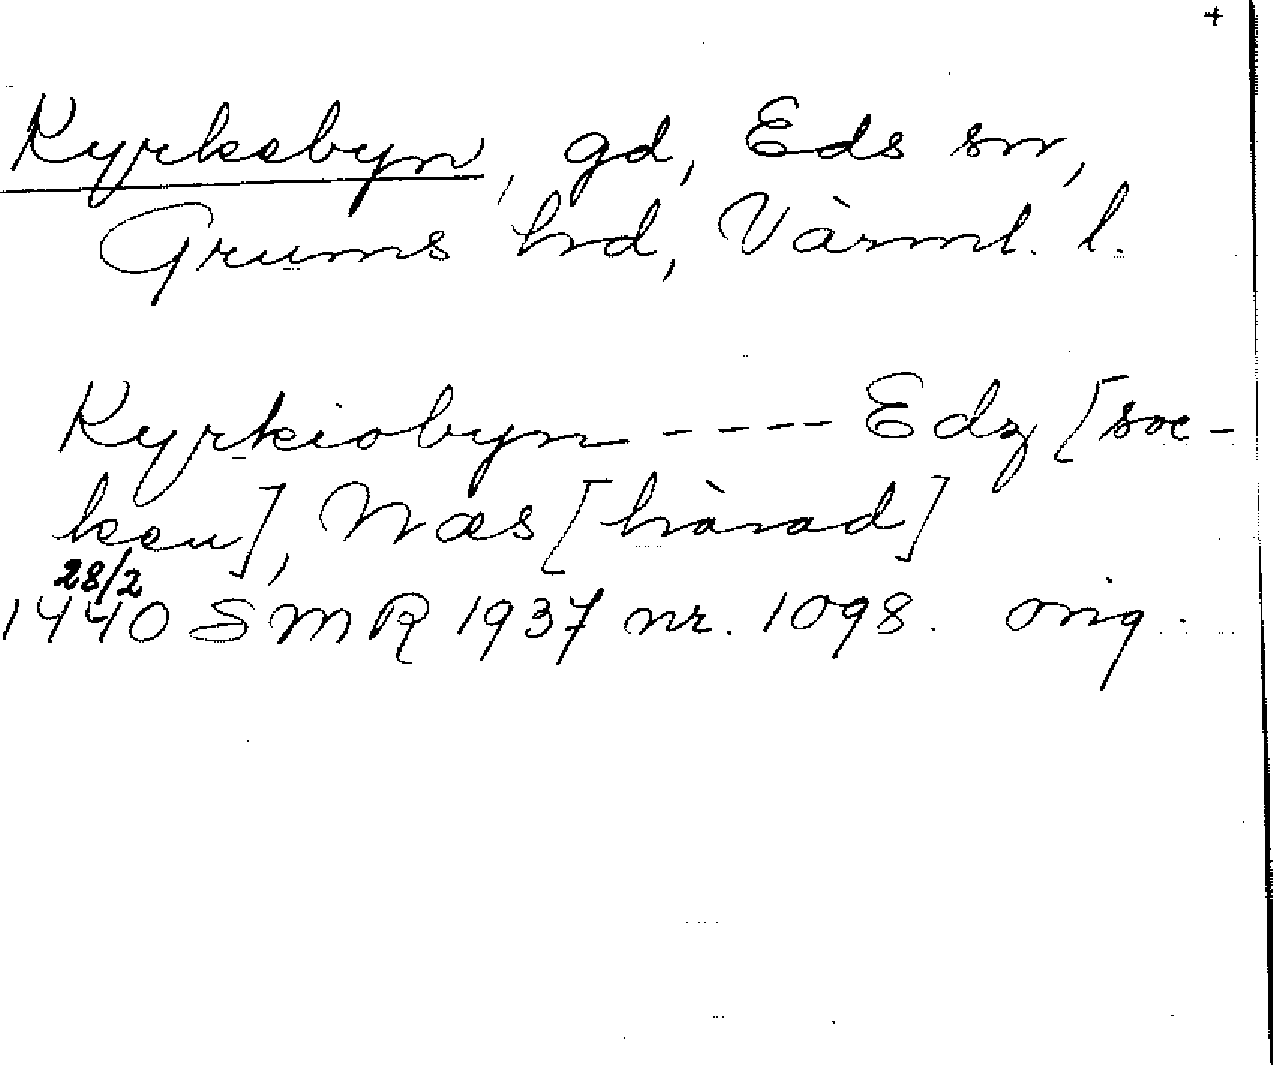 +
Kyrkebyn, gd, Eds sn,
Grums hrd, Värml. l.
Kyrkiobyn ---- Edz [soc-
ken], Næs [härad]
28/2
1440 SMR 1937 nr. 1098. orig.